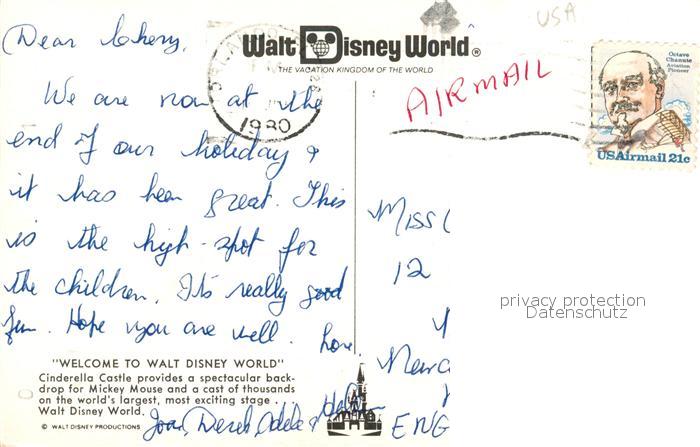 USA
Walt Disney World®
THE VACATION KINGDOM OF THE WORLD
1980
AIRMAIL
Octave
Chanute
Aviation
Pioneer
USAirmail 21c
Dear Chery,
We are now at the
end of our holiday &
it has been great. This
is the high-spot for
the children. It's really good
fun. Hope you are well.
Love,
Joan, Derek, Adele &
"WELCOME TO WALT DISNEY WORLD"
Cinderella Castle provides a spectacular back-
drop for Mickey Mouse and a cast of thousands
on the world's largest, most exciting stage . .
Walt Disney World.
© WALT DISNEY PRODUCTIONS
MISS
12
ENG
privacy protection
Datenschutz